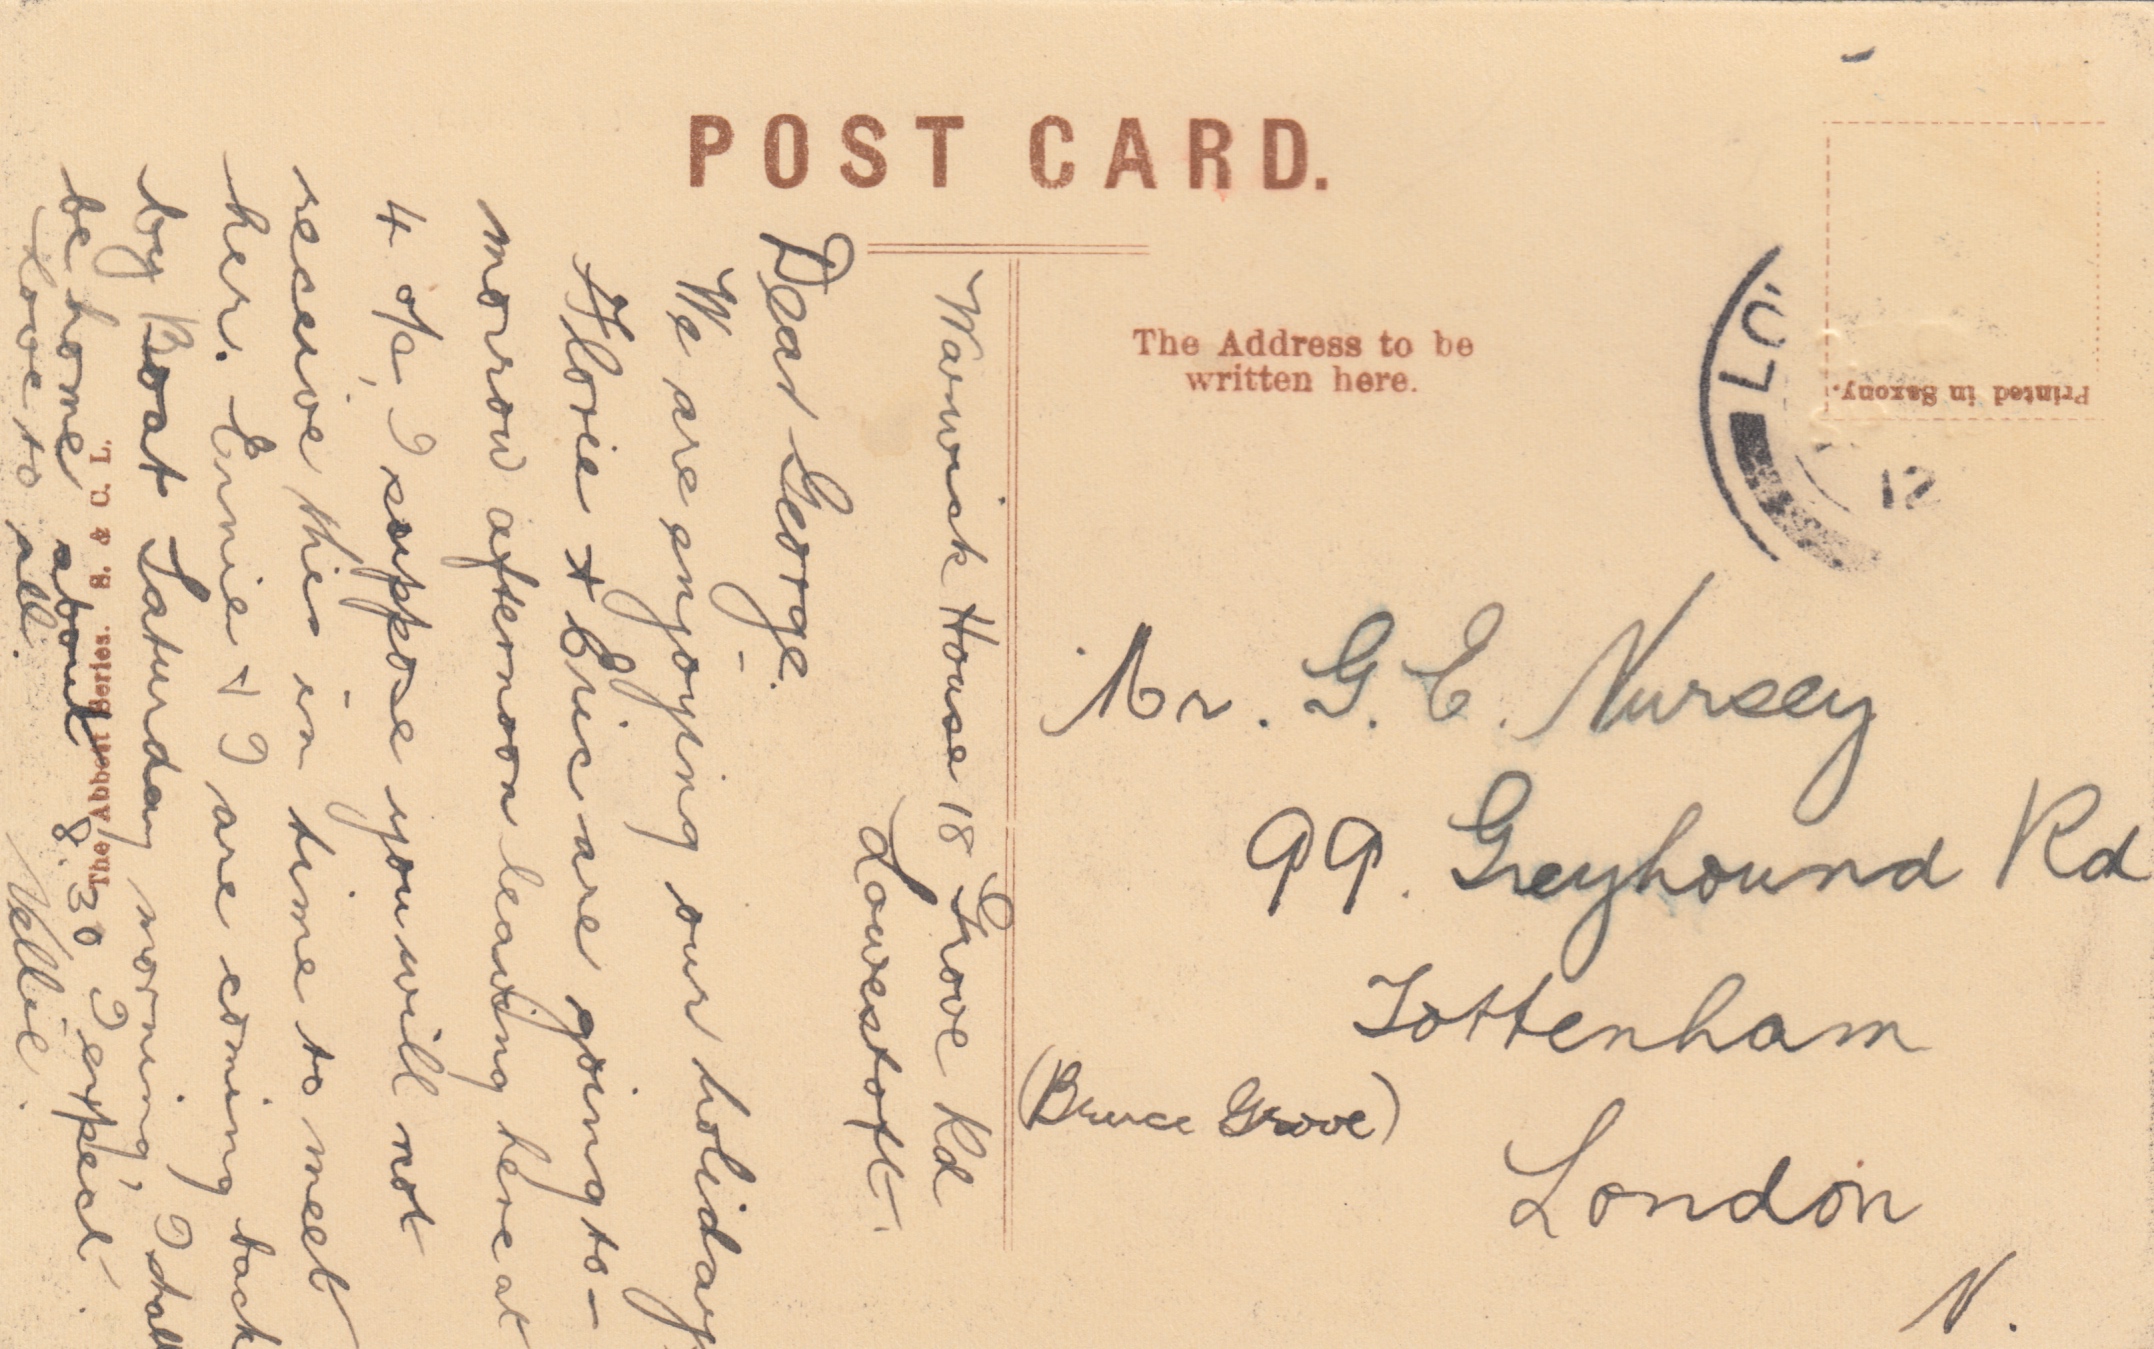 POST CARD.
The Address to be
written here.
Printed in Saxony.
LO
12
Warwick House 18 Grove Rd
Lowestoft.
Dear George.
We are enjoying our holiday
Florie + Eric are going to-
morrow afternoon leaving here at
4 o/c, I suppose you will not
receive this in time to meet
her. Ernie + I are coming back
by Boat Saturday morning, I shall
be home about 8.30 I expect.
Love to all. Nellie.
The Abbott Series. S. & C. L.
Mr. G. E. Nursey
99. Greyhound Rd
Tottenham
(Bruce Grove)
London
N.